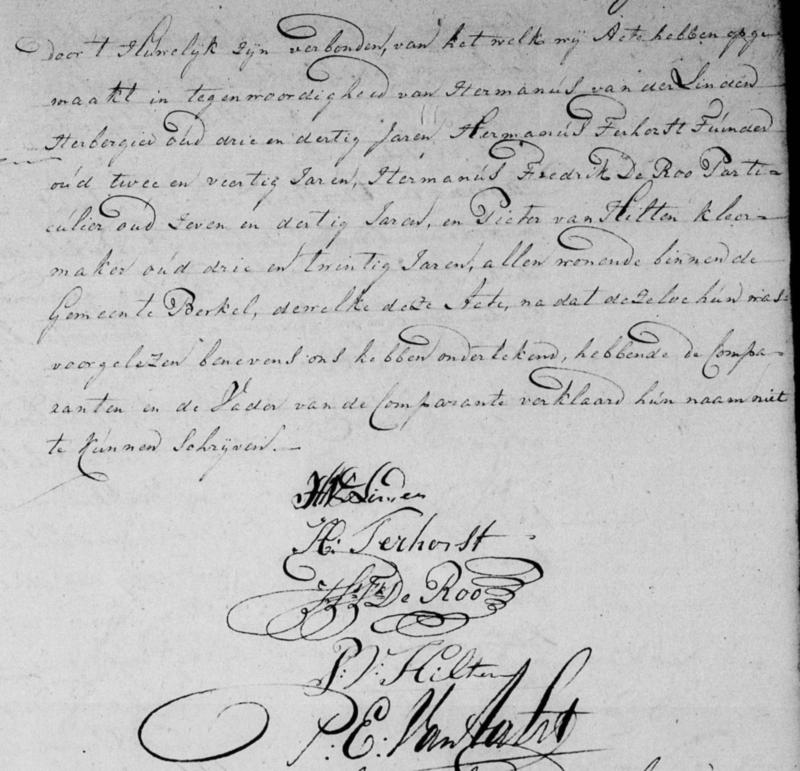 door 't Huwelijk zijn verbonden, van het welk wij Acte hebben opge-
maakt in tegenwoordigheid van Hermanus van der Linden
Herbergier oud drie en dertig Jaren, Hermanus Terhorst Tuinder
oud twee en veertig Jaren, Hermanus Fredrik De Roo Parti-
culier oud zeven en dertig Jaren, en Pieter van Hilten kleer-
maker oud drie en twintig Jaren, allen wonende binnen de
Gemeente Berkel, dewelke deze Acte, na dat dezelve hun was
voorgelezen benevens ons hebben ondertekend, hebbende de Compa-
ranten en de Vader van de Comparante verklaard hun naam niet
te kunnen schrijven.
Linden
H. Terhorst
De Roo
P. V. Hilten
P. E. Van